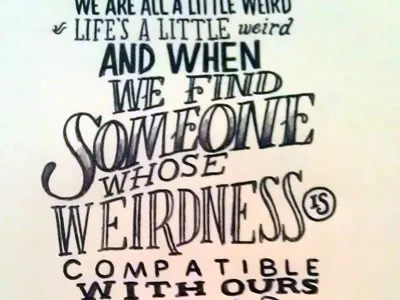 WE ARE ALL A LITTLE WEIRD
LIFE'S A LITTLE weird
AND WHEN
WE FIND
SOMEONE
WHOSE
WEIRDNESS IS
COMPATIBLE
WITH OURS